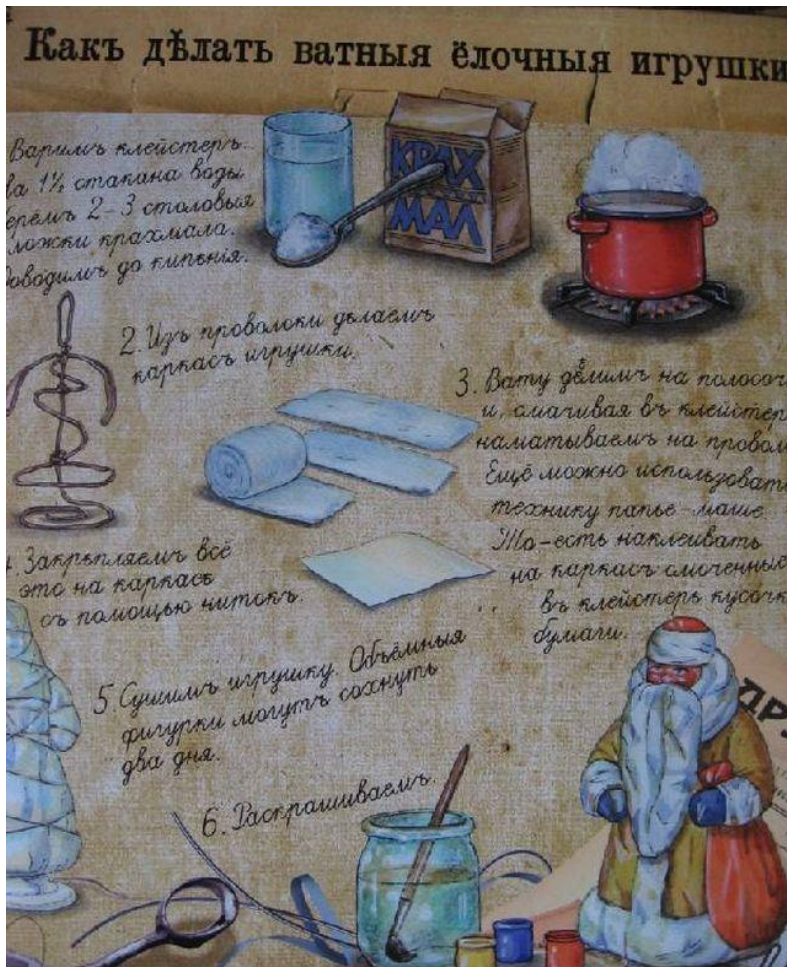 Какъ дѣлать ватныя ёлочныя игрушки
Варимъ клейстеръ.
На 1½ стакана воды
берёмъ 2-3 столовыя
ложки крахмала.
Доводимъ до кипѣнія.
КРАХ
МАЛ
2. Изъ проволоки дѣлаемъ
каркасъ игрушки.
3. Вату дѣлимъ на полосоч
и, смачивая въ клейстер
наматываемъ на провол
Ещё можно использовать
технику папье-маше.
То-есть наклеивать
на каркасъ смоченные
въ клейстерѣ кусочк
бумаги.
4. Закрѣпляемъ всё
это на каркасѣ
съ помощью нитокъ.
5 Сушимъ игрушку. Объёмныя
фигурки могутъ сохнуть
два дня.
6. Раскрашиваемъ.
ДР